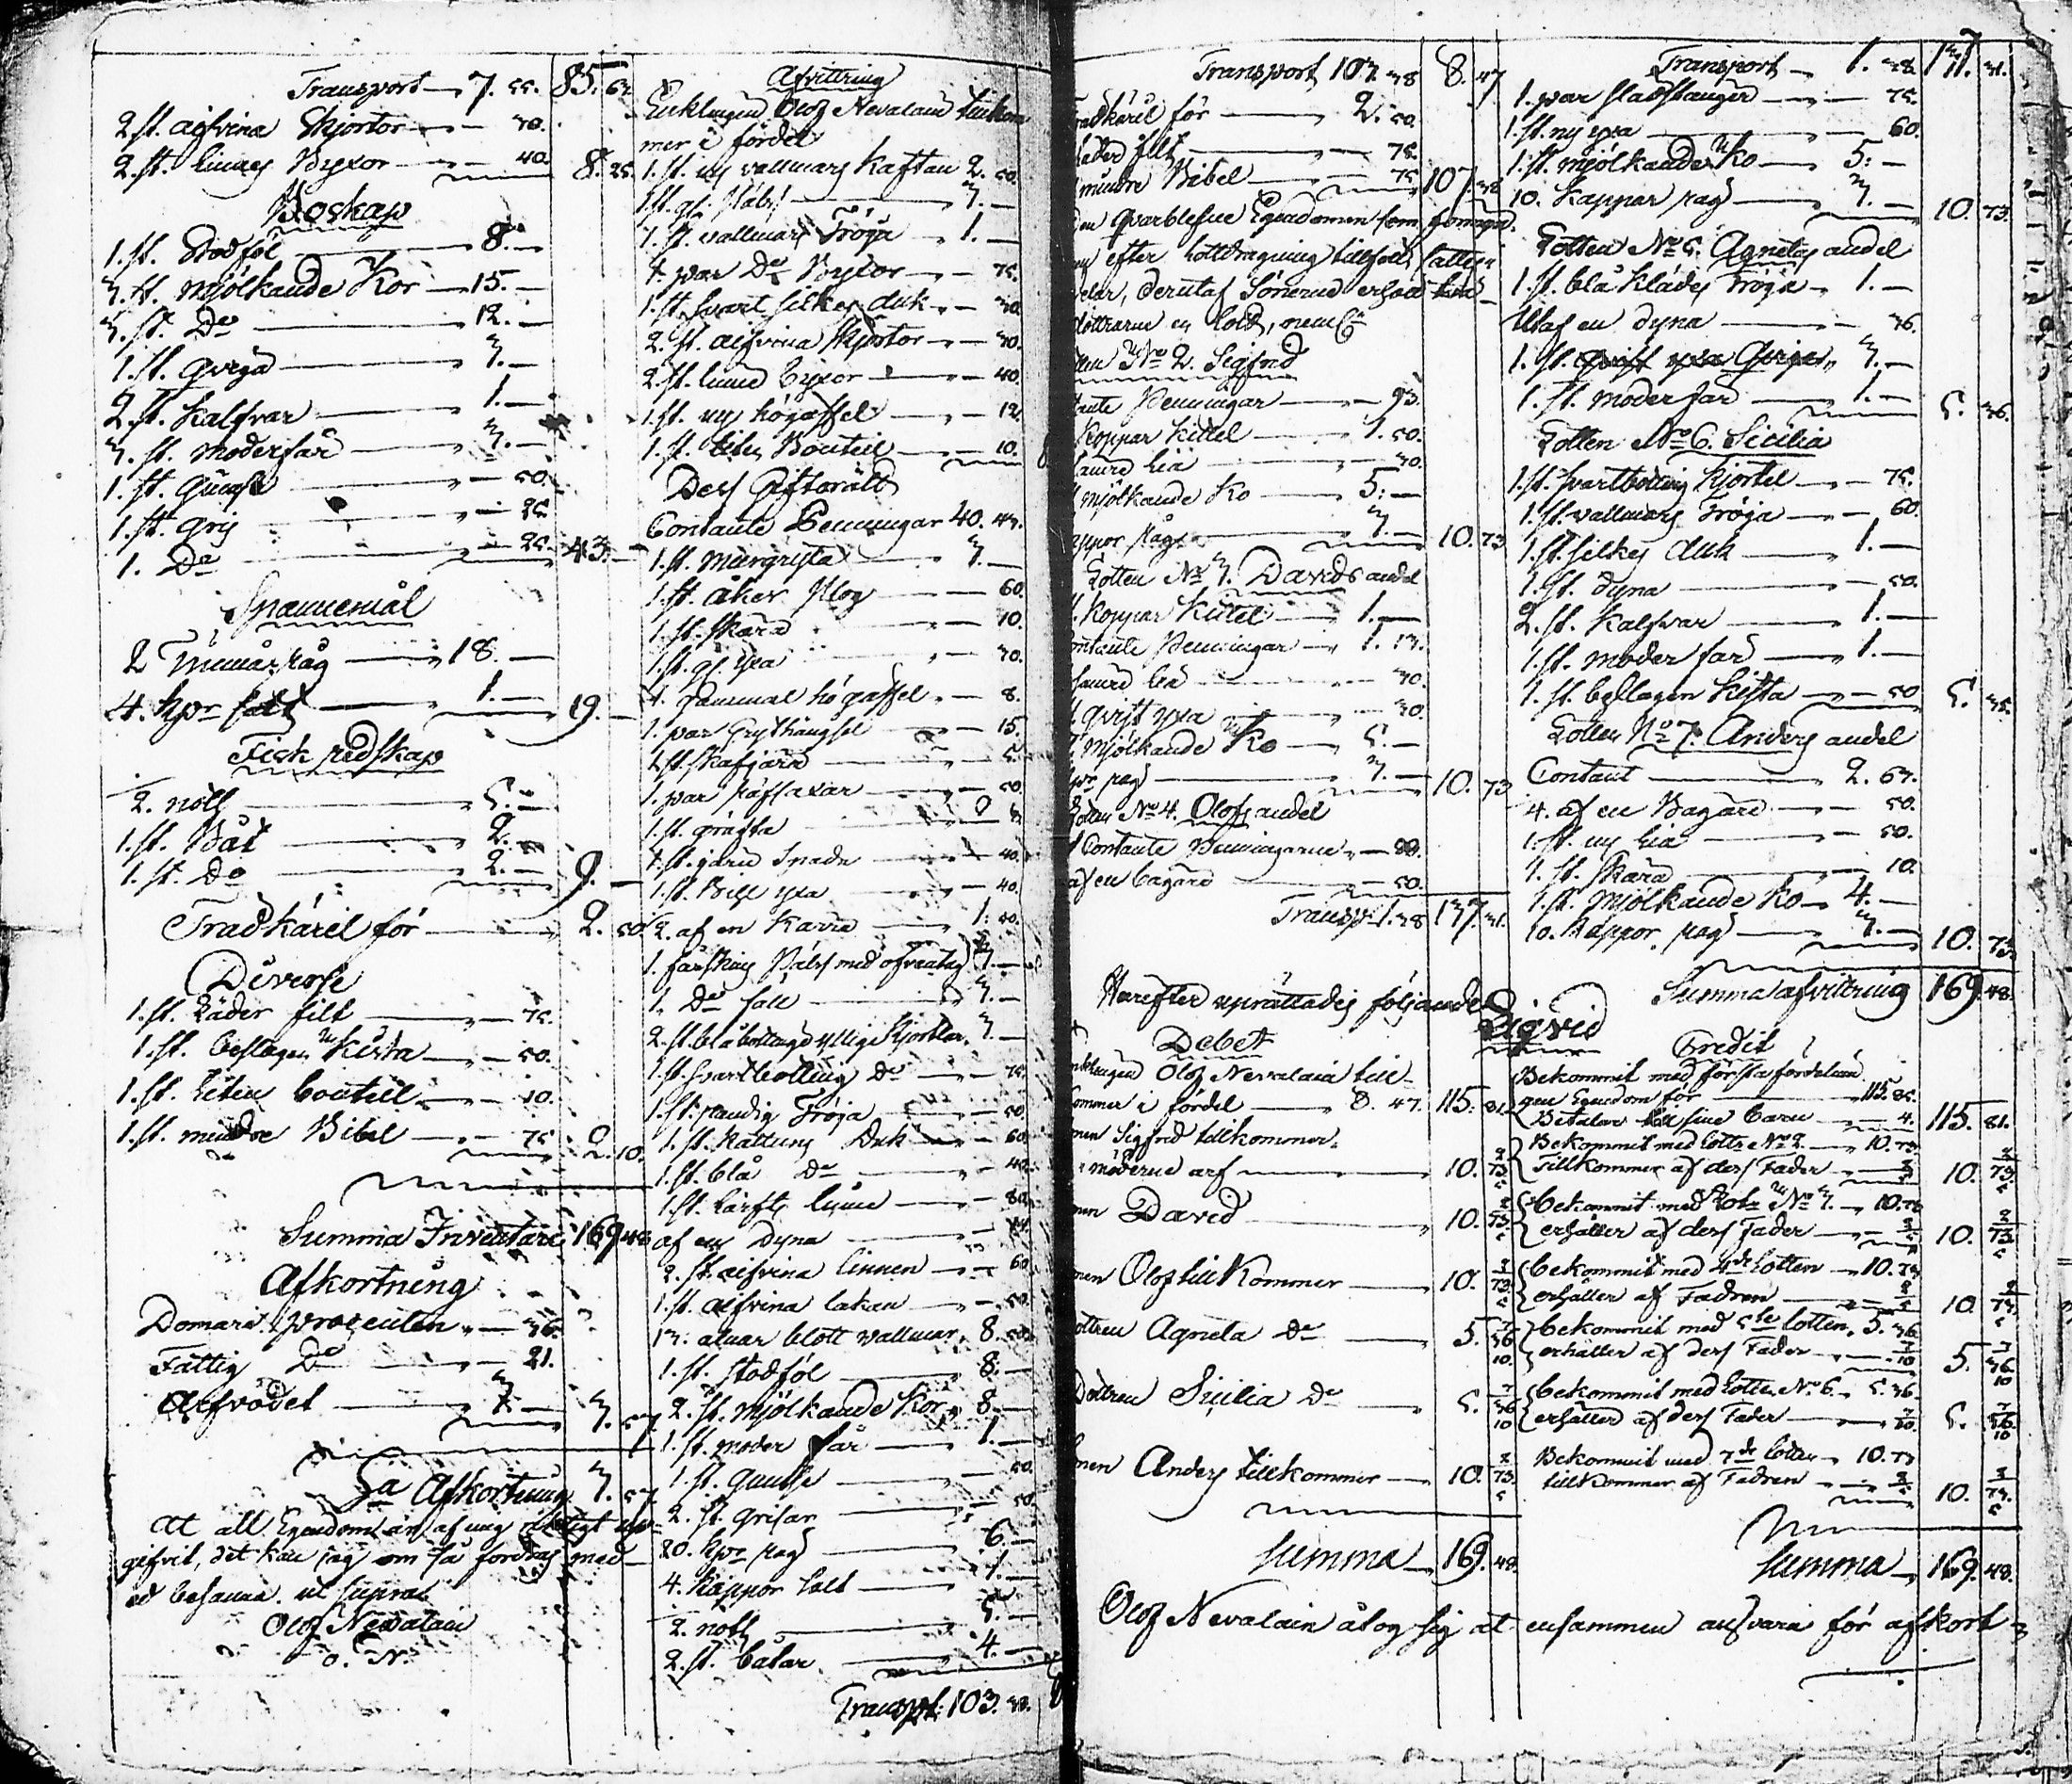 Transport 7. 55. 85. 62
2. st. aifvina Skjortor 30.
2. st. linnes Byxor 40. 8. 25.
Boskap
1. st. Stodföl 8. —
3. st. mjölkande Kor 15. —
3. st. Do 12. —
1. st. qviga 3. —
2. st. Kalfvar 1. —
3. st. moderfår 3. —
1. st. Gumse 50.
1. st. gris 25.
1. Do 25. 43. —
Spannemål
2 Tunnår råg 18. —
4. kpr salt 1. — 19. —
Fisk redskap
2. noth 5. —
1. st. Båt 2. —
1. st. Do 2. — 9. —
Trädkäril för 2. 50
Diverse
1. st. Läder filt 75.
1. st. beslagen Kista 50.
1. st. Liten bouteil 10.
1. st. mindre Bibel 75. 2. 10.
Summa Inventarii 169. 48
Afkortning
Domare procenten 36.
Fattig Do 21.
Arfvodet 3. — 3. 57
Sa Afkortning 3. 57
At all Egendom är af mig riktigt upp-
gifvit, det kan jag om så fordras med
ed besanna. ut supra
Olof Nevalain
O. N.
Afvittring
Enklingen Olof Nevalain tillkom
mer i fördel
1. st. ny vallmars Kaftan 2. 50.
1. st. gl. Päls 3. —
1. st. vallmars Tröja 1. —
1. par Do Byxor 75.
1. st. svart silkes duk 30.
2. st. aifvina Skjortor 30.
2. st. linne byxor 40.
1. st. ny högaffel 12.
1. st. liten Bouteil 10.
Dess Giftorätt
Contante Penningar 40. 43.
1. st. murgryta 3. —
1. st. åker Plog 60.
1. st. Skära 10.
1. st. gl. yxa 30.
1. gammal högaffel 8.
1. par Grythängsel 15.
1. st. skafjärn 5.
1. par råfsaxar 50.
1. st. gräfta
1. st. järn Spade 40.
1. st. Bill yxa 40.
2. af en Karra 1. 50.
1. fårskins Päls med öfvertag 3. —
1. Do fall 3. —
2. st. blåbottnigd yllige Kjortlar 3. —
1. st. svartbottnig Do 75.
1. st. randig Tröja 50
1. st. Kattuns Duk 60
1. st. blå Do 40.
1. st. Lärfts linne 80.
af en Dyna 14.
2. st. aifvina linnen 60
1. st. aifvina lakan 50.
13. alnar blott vallmar 8. 50.
1. st. stodföl 8. —
2. st. mjölkande Kor 8. —
1. st. moder får 1. —
1. st. Gumse 50.
2. st. grisar 50.
20. kpr råg 6. —
4. Kappor salt 1. —
2. noth 5. —
2. st. båtar 4. —
Transpt. 103. 38.
Transport 103. 38 8. 47
Trädkäril för 2. 50.
Läder filt 75.
mindre Bibel 75 107. 38
den qvarblefne Egendomen som genom
efter Lottdragning tillföll
delar, derutaf Sönerne erhöll två
döttrarne en Lott, neml:
No 2. Sigfrid
Contante Penningar 93.
Koppar Kittel 1. 50.
lia 30.
mjölkande Ko 5. —
kappor råg 3. — 10. 73
Lotten No 3. Davids andel
Koppar Kittel 1. —
Contante Penningar 1. 13.
lia 30.
1. qvist yxa 30.
1. mjölkande Ko 5. —
kpr råg 3. — 10. 73
Lotten No 4. Olofs andel
Contante Penningarne 88.
af en bagare 50.
Transp. 1. 38 137. 31.
Härefter upprättades följande
Debet
Enklingen Olof Nevalain till-
kommer i fördel 8. 47. 115. 81
Sonen Sigfrid tillkommer
i möderne arf 10. 73 2/5
Sonen David 10. 73 2/5
Sonen Olof tillkommer 10. 73 2/5
Dottren Agneta Do 5. 36 7/10
Dottren Sicilia Do 5. 36 7/10
Sonen Anders tillkommer 10. 73 2/5
Summa 169. 48.
Transport 1. 38 137. 31.
1. par slädstänger 75.
1. st. ny yxa 60.
1. st. mjölkande Ko 5. —
10. Kappar råg 3. — 10. 73
Lotten No 5. Agnetas andel
1. st. blå Klädes Tröja 1. —
Utaf en dyna 36.
1. st. qvist yxa Qviga 3. —
1. st. moder får 1. — 5. 36.
Lotten No 6. Sicilia
1. st. svartbottnig Kjortel 75.
1. st. vallmars Tröja 60.
1. st. silkes duk 1. —
1. st. dyna 50.
2. st. Kalfvar 1. —
1. st. moder får 1. —
1. st. beslagen Kista 50 5. 35.
Lotten No 7. Anders andel
Contant 2. 63.
4. af en Bagare 50.
1. st. ny lia 50.
1. st. Skära 10.
1. st. Mjölkande Ko 4. —
10. Kappor råg 3. — 10. 73
Summa afvittring 169. 48.
Liqvid
Credit
Bekommit med första fördelnin
gen Egendom för 115. 85.
Betalar till sine barn 4. 115. 81.
Bekommit med Lotte No 2. 10. 73.
Tillkommer af dess Fader 2/5 10. 73 2/5
bekommit med Lotte No 3. 10. 73
erhåller af dess Fader 2/5 10. 73 2/5
bekommit med 4de Lotten 10. 73
erhåller af Fadren 2/5 10. 73 2/5
bekommit med 5te Lotten. 5. 36
erhåller af dess Fader 7/10 5. 36 7/10
bekommit med Lotten No 6. 5. 36.
erhåller af dess Fader 7/10 5. 36 7/10
Bekommit med 7de Lotten 10. 73
tillkommer af Fadren 2/5 10. 73 2/5
Summa 169. 48.
Olof Nevalain åtog sig at ensammen ansvara för afkort